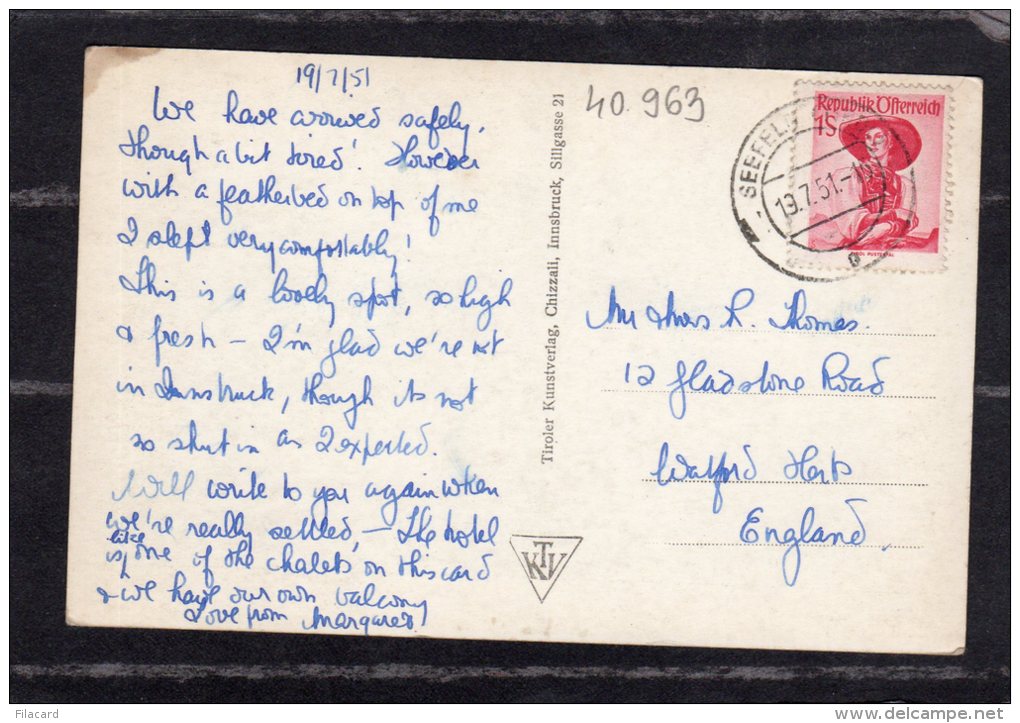 19/7/51
We have arrived safely,
though a bit tired! However
with a featherbed on top of me
I slept very comfortably!
This is a lovely spot, so high
& fresh – I'm glad we're not
in Innsbruck, though its not
so shut in as I expected.
Will write to you again when
we're really settled, – The hotel
is like one of the chalets on this card
& we have our own balcony
Love from Margaret
Tiroler Kunstverlag, Chizzali, Innsbruck, Sillgasse 21
KTV
40.963
Republik Österreich
1S
TIROL PUSTERTAL
SEEFELD
13.7.51.-
Mr & Mrs R. Thomas.
12 Gladstone Road
Watford Herts
England.
Filacard
www.delcampe.net